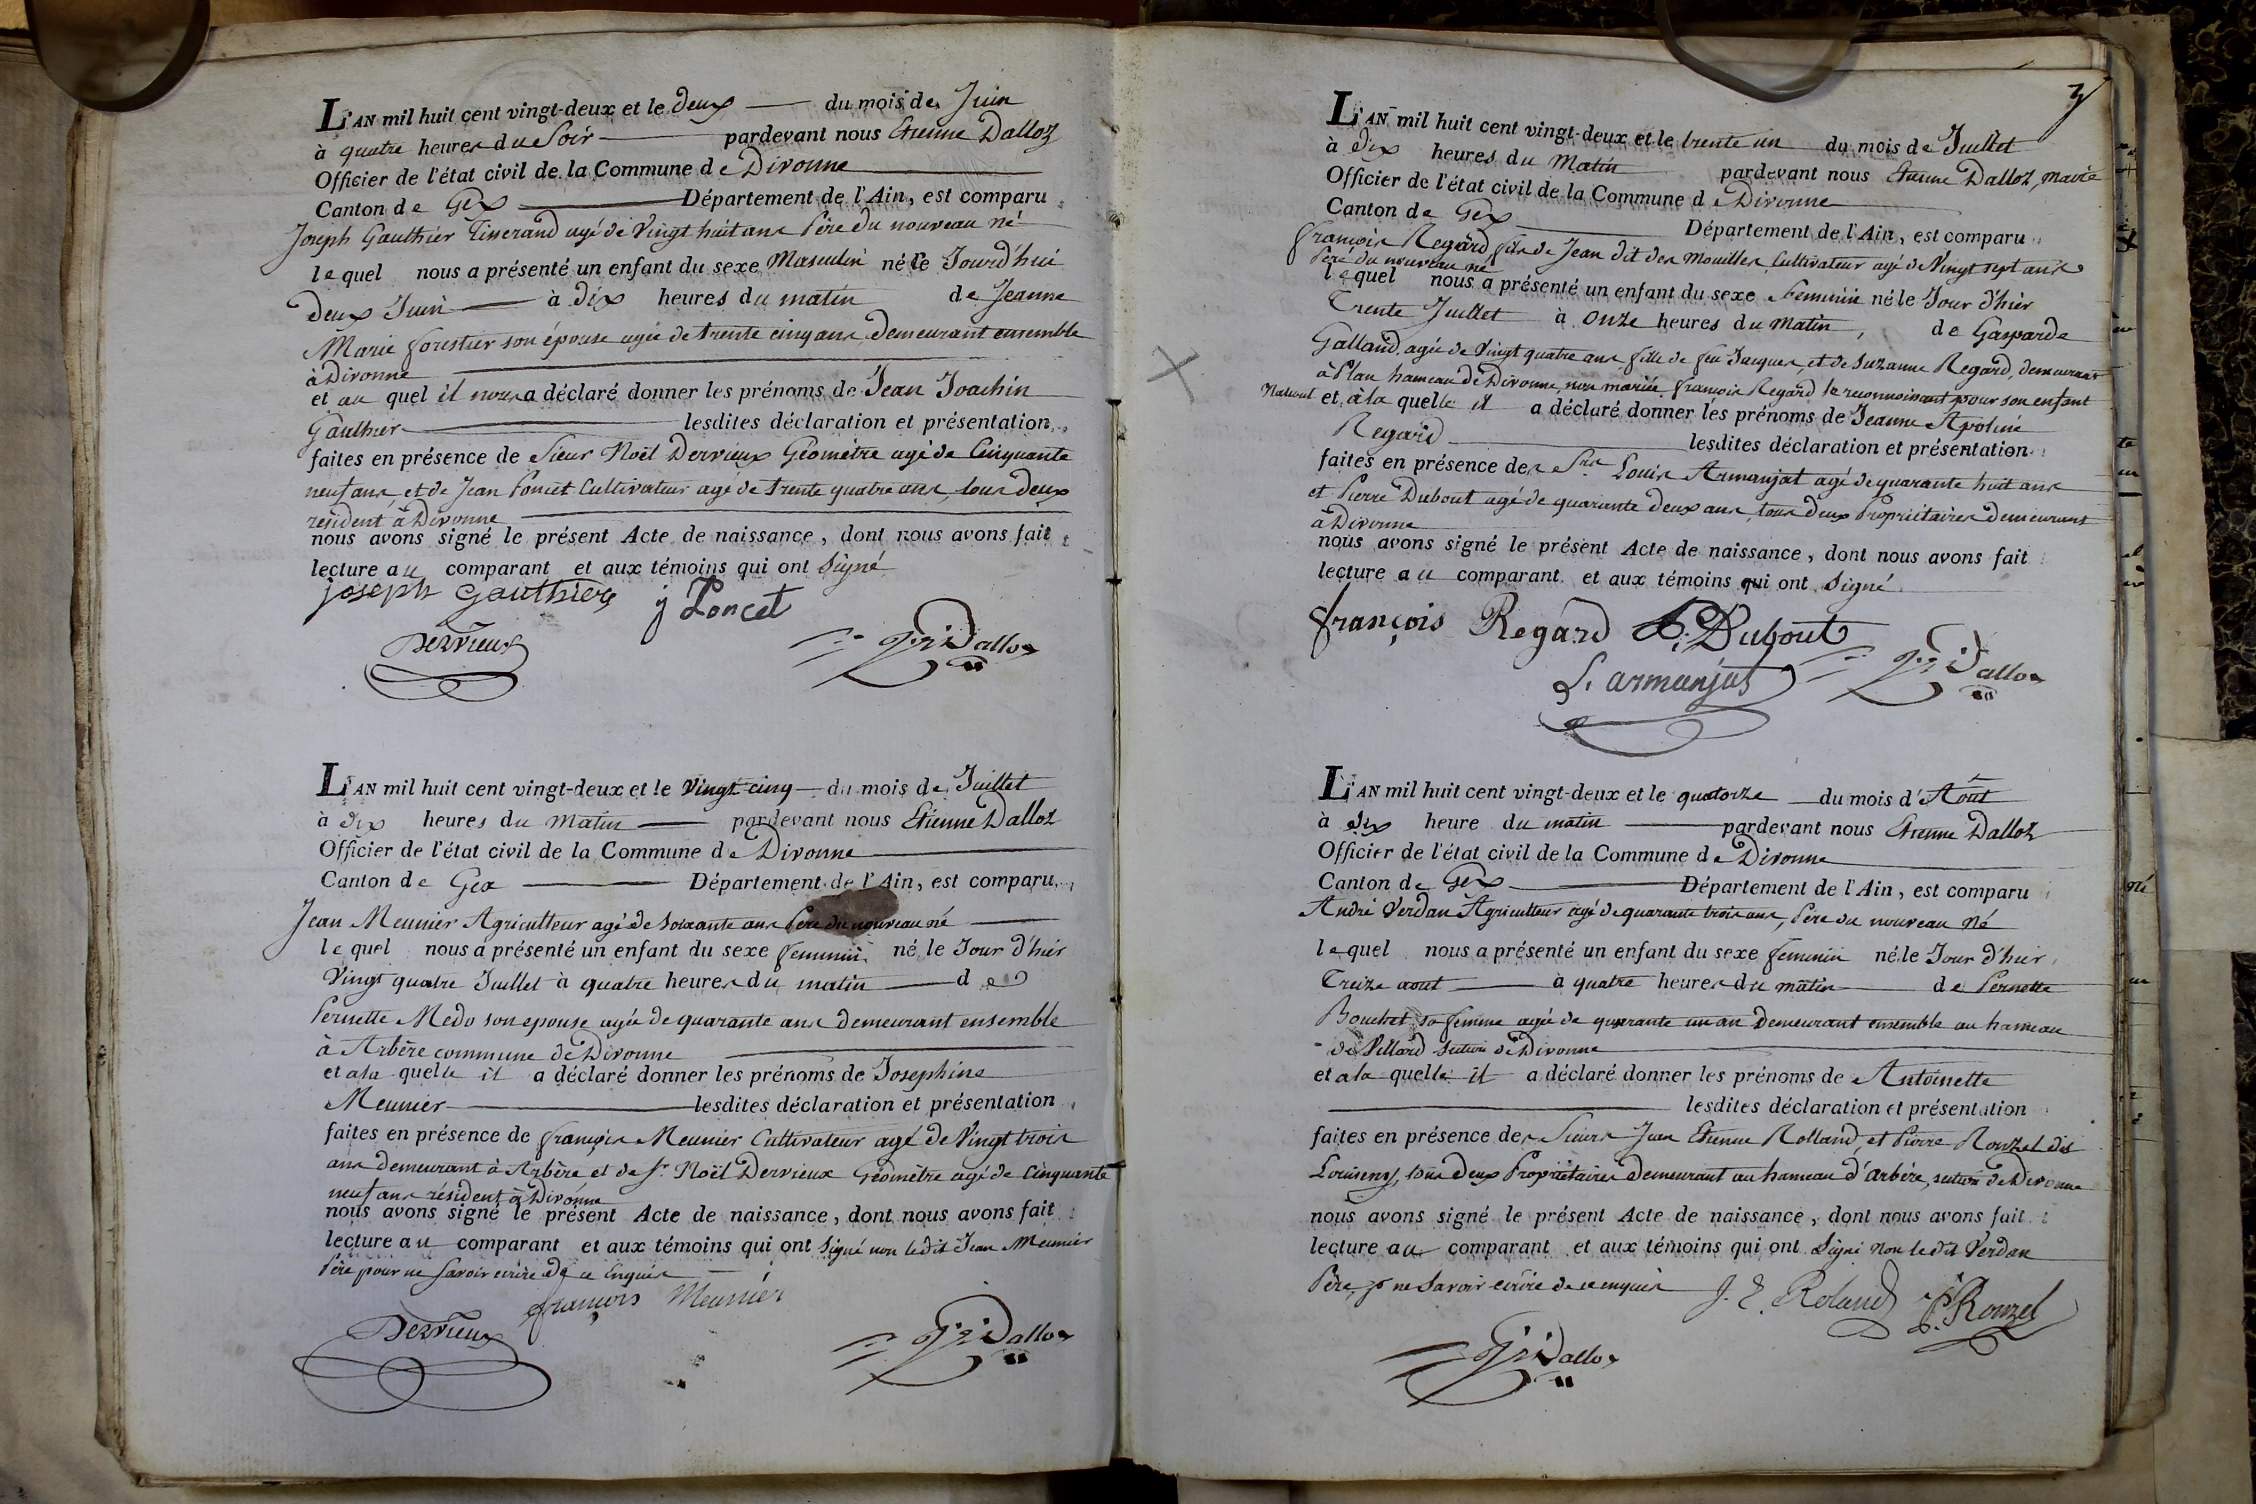 L'AN mil huit cent vingt-deux et le deux du mois de Juin
à quatre heures du Soir pardevant nous Etienne Dalloz
Officier de l'état civil de la Commune de Divonne
Canton de Gex Département de l'Ain, est comparu
Joseph Gauthier Tisserand agé de Vingt huit ans Père du nouveau né
lequel nous a présenté un enfant du sexe Masculin né le Jourd'hui
deux Juin à dix heures du matin de Jeanne
Marie forestier son épouse agée de trente cinq ans demeurant ensemble
à Divonne
et au quel il nous a déclaré donner les prénoms de Jean Joachin
Gauthier lesdites déclaration et présentation
faites en présence de Sieur Noël Dervieux Géomètre agé de Cinquante
neuf ans et de Jean Poncet Cultivateur agé de trente quatre ans, tous deux
résident à Divonne
nous avons signé le présent Acte de naissance, dont nous avons fait
lecture au comparant et aux témoins qui ont Signé
joseph Gauthier j Poncet
Dervieux Dalloz
L'AN mil huit cent vingt-deux et le Vingt cinq du mois de Juillet
à dix heures du matin pardevant nous Etienne Dalloz
Officier de l'état civil de la Commune de Divonne
Canton de Gex Département de l'Ain, est comparu
Jean Meunier Agriculteur agé de soixante ans Père du nouveau né
lequel nous a présenté un enfant du sexe feminin né le Jour d'hier
Vingt quatre Juillet à quatre heures du matin de
Pernette Medo son epouse agée de quarante ans demeurant ensemble
à Arbère commune de Divonne
et a la quelle il a déclaré donner les prénoms de Josephine
Meunier lesdites déclaration et présentation
faites en présence de françois Meunier Cultivateur agé de Vingt trois
ans demeurant à Arbère et de Sr Noël Dervieux Géomètre agé de Cinquante
neuf ans résident à Divonne
nous avons signé le présent Acte de naissance, dont nous avons fait
lecture au comparant et aux témoins qui ont signé non ledit Jean Meunier
Père pour ne savoir ecrire de ce Enquis
françois Meunier
Dervieux Dalloz
3
L'AN mil huit cent vingt-deux et le trente un du mois de Juillet
à dix heures du Matin pardevant nous Etienne Dalloz, maire
Officier de l'état civil de la Commune de Divonne
Canton de Gex Département de l'Ain, est comparu
françois Regard fils de Jean dit des Mouilles, Cultivateur agé de Vingt sept ans
Père du nouveau né
lequel nous a présenté un enfant du sexe feminin né le Jour d'hier
Trente Juillet à onze heures du Matin, de Gasparde
Galland, agée de Vingt quatre ans, fille de feu Jacques, et de Suzanne Regard, demeurant
à Plan hameau de Divonne, non mariée, françois Regard la reconnoissant pour son enfant
Naturel et a la quelle il a déclaré donner les prénoms de Jeanne Apoline
Regard lesdites déclaration et présentation
faites en présence des Srs Louis Armanjat agé de quarante huit ans
et Pierre Dubout agé de quarante deux ans, tous deux Propriétaires demeurant
à Divonne
nous avons signé le présent Acte de naissance, dont nous avons fait
lecture au comparant et aux témoins qui ont Signé
françois Regard P. Dubout
L. armanjat Dalloz
L'AN mil huit cent vingt-deux et le quatorze du mois d'Août
à dix heure du matin pardevant nous Etienne Dalloz
Officier de l'état civil de la Commune de Divonne
Canton de Gex Département de l'Ain, est comparu
André Verdan Agriculteur agé de quarante trois ans, Père du nouveau Né
lequel nous a présenté un enfant du sexe feminin né le Jour d'hier
Treize aout à quatre heures du matin de Pernette
Bouchet sa femme agée de quarante un an demeurant ensemble au hameau
de Villard section de Divonne
et a la quelle il a déclaré donner les prénoms de Antoinette
lesdites déclaration et présentation
faites en présence des Sieurs Jean Etienne Rolland, et Pierre Rouzel dit
tous deux Propriétaires demeurant au hameau d'Arbère, section de Divonne
nous avons signé le présent Acte de naissance, dont nous avons fait
lecture au comparant et aux témoins qui ont Signé Non ledit Verdan
Père, pr ne Savoir ecrire de ce enquis J. E. Roland P. Rouzel
Dalloz